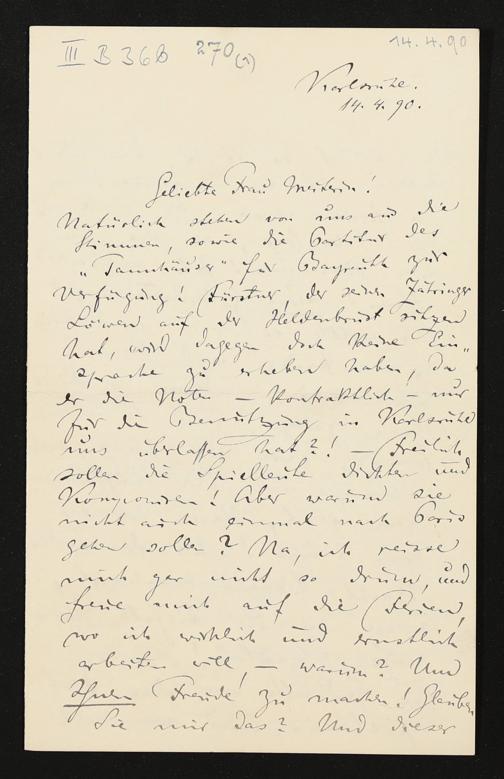 III B 36b 270 (1)
14.4.90
Karlsruhe.
14. 4. 90.
Geliebte Frau Meisterin!
Natürlich stehen von uns aus die
Stimmen, sowie die Partitur des
„Tannhäuser“ für Bayreuth zur
Verfügung! Fürstner, der seinen Zähringer
Löwen auf der Heldenbrust sitzen
hat, wird dagegen doch keine Ein„
sprache zu erheben haben, da
er die Noten – kontraktlich – nur
für die Benutzung in Karlsruhe
uns überlassen hat?! – Freilich
sollen die Spielleute dichten und
Komponiren! Aber warum sie
nicht auch einmal nach Paris
gehen sollen? Na, ich reisse
mich gar nicht so drum, und
freue mich auf die Ferien,
wo ich wirklich und ernstlich
arbeiten will, – warum? Um
Ihnen Freude zu machen! Glauben
Sie mir das? Und dieser